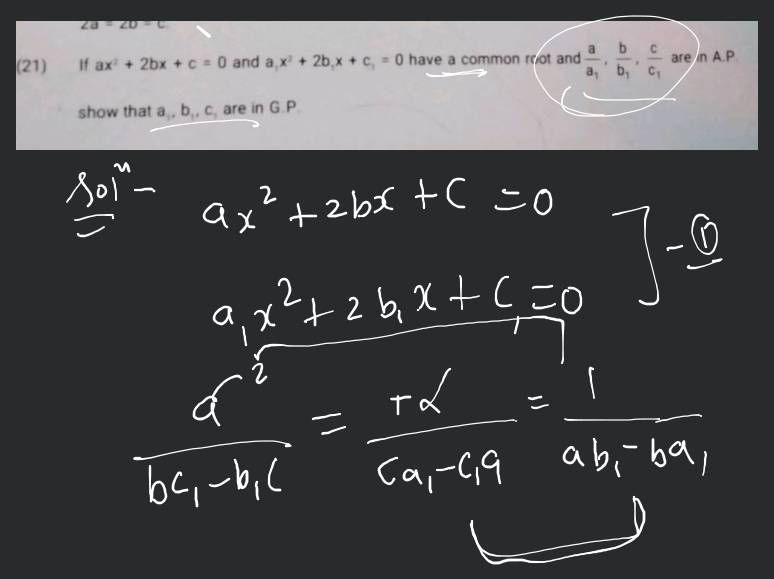 2a = 2b = c.
(21) If ax² + 2bx + c = 0 and a₁x² + 2b₁x + c₁ = 0 have a common root and a/a₁, b/b₁, c/c₁ are in A.P.
show that a₁, b₁, c₁ are in G.P.
Solⁿ -
ax² + 2bx + c = 0
a₁x² + 2b₁x + c₁ = 0 ] - ①
α²/(bc₁ - b₁c) = +α/(ca₁ - c₁a) = 1/(ab₁ - ba₁)